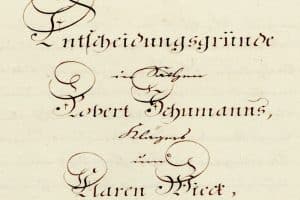 Entscheidungsgründe
in Sachen
Robert Schumanns,
Klägers
und
Klaren Wieck,